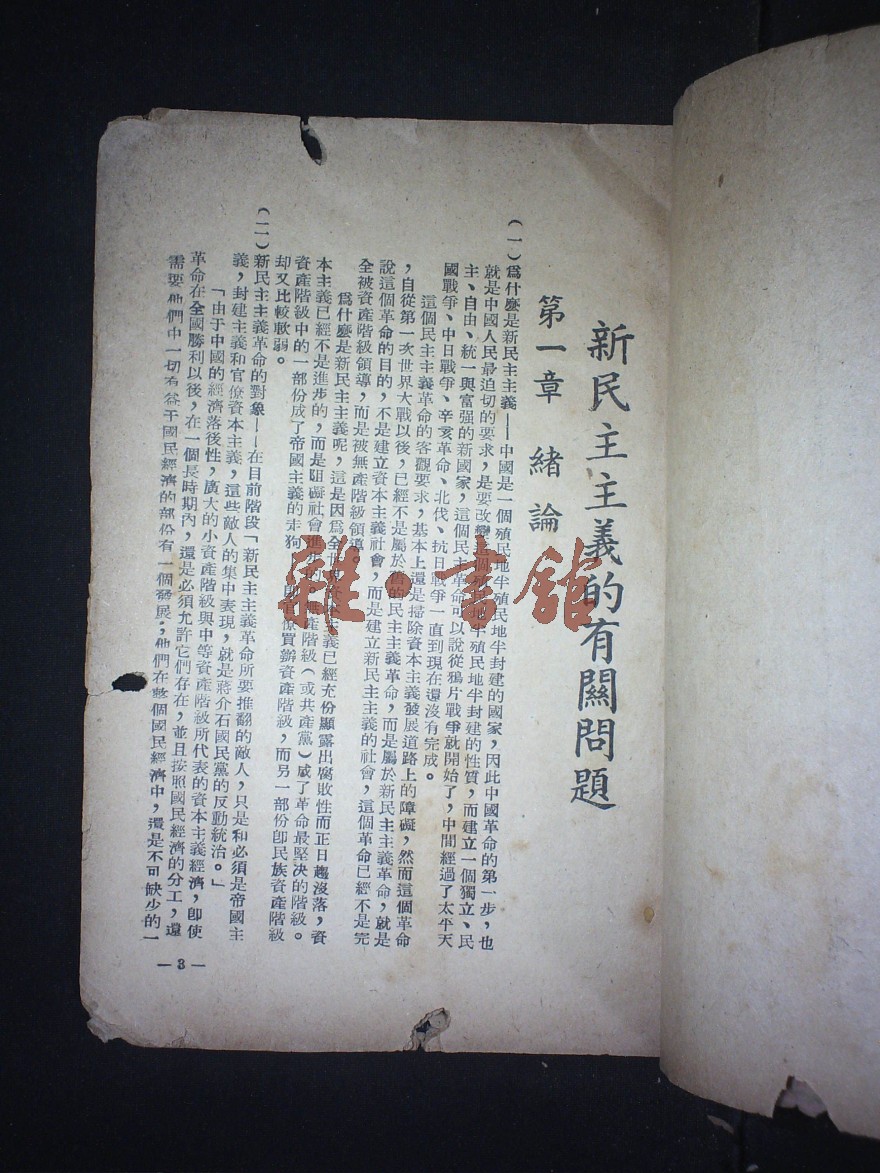 新民主主義的有關問題
第一章 緒論
(一)爲什麼是新民主主義——中國是一個殖民地半殖民地半封建的國家,因此中國革命的第一步,也
就是中國人民最迫切的要求,是要改變這個殖民地半殖民地半封建的性質,而建立一個獨立、民
主、自由、統一與富强的新國家,這個民主革命可以說從鴉片戰爭就開始了,中間經過了太平天
國戰爭、中日戰爭、辛亥革命、北伐、抗日戰爭一直到現在還沒有完成。
這個民主主義革命的客觀要求,基本上還是掃除資本主義發展道路上的障礙,然而這個革命
,自從第一次世界大戰以後,已經不是屬於舊的民主主義革命,而是屬於新民主主義革命,就是
說這個革命的目的,不是建立資本主義社會,而是建立新民主主義的社會,這個革命已經不是完
全被資產階級領導,而是被無產階級領導。
爲什麼是新民主主義呢,這是因爲全世界資本主義已經充份顯露出腐敗性而正日趨沒落,資
本主義已經不是進步的,而是阻礙社會進步的,無產階級(或共產黨)成了革命最堅決的階級。
資產階級中的一部份成了帝國主義的走狗,即官僚買辦資產階級,而另一部份即民族資產階級
却又比較軟弱。
(二)新民主主義革命的對象——在目前階段「新民主主義革命所要推翻的敵人,只是和必須是帝國主
義,封建主義和官僚資本主義,這些敵人的集中表現,就是蔣介石國民黨的反動統治。」
「由于中國的經濟落後性,廣大的小資產階級與中等資產階級所代表的資本主義經濟,卽使
革命在全國勝利以後,在一個長時期內,還是必須允許它們存在,並且按照國民經濟的分工,還
需要他們中一切有益于國民經濟的部份有一個發展;他們在整個國民經濟中,還是不可缺少的一
—3—
雜·書館